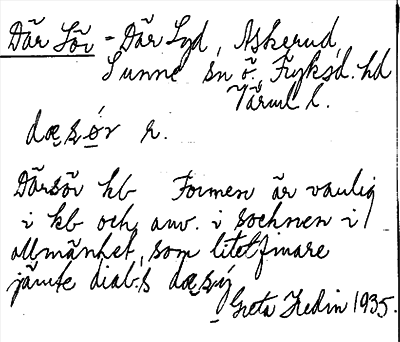 Där Sör - Där Syd, Askerud,
Sunne sn ö. Fryksd. hd
Värml l.
dæsǿr r.
Därsör kb Formen är vanlig
i kb och anv. i socknen i
allmänhet, som litet finare
jämte dial:s
Greta Hedin 1935.